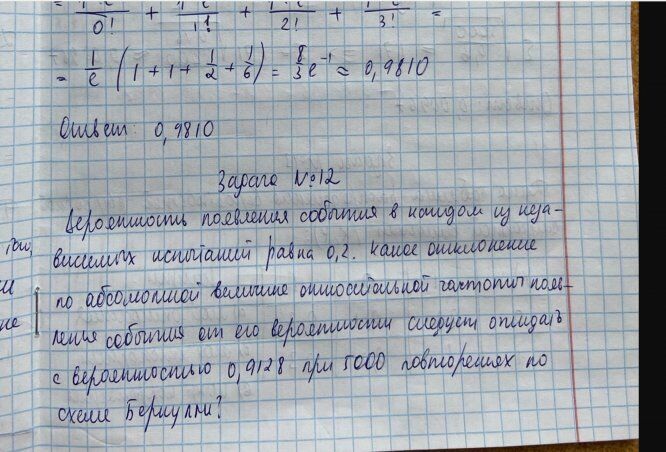 0! + 1! + 2! + 3! =
= 1/e (1 + 1 + 1/2 + 1/6) = 8/3 e⁻¹ ≈ 0,9810
Ответ: 0,9810
Задача №12
Вероятность появления события в каждом из неза-
висимых испытаний равна 0,2. Какое отклонение
по абсолютной величине относительной частоты появ-
ления события от его вероятности следует ожидать
с вероятностью 0,9128 при 5000 повторениях по
схеме Бернулли?